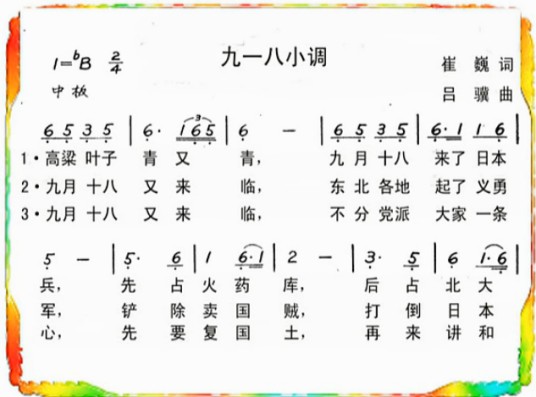 九一八小调
1=ᵇB 2/4 崔 巍 词
中板 吕 骥 曲
6 5 3 5 | 6· 1 6 5 | 6 － | 6 5 3 5 | 6·1 1 6 |
1·高粱 叶子 青 又 青， 九 月 十八 来了 日本
2·九月 十八 又 来 临， 东 北 各地 起了 义勇
3·九月 十八 又 来 临， 不 分 党派 大家 一条
5 － | 5· 6 | 1 6·1 | 2 － | 3· 5 | 6 1·6 |
兵， 先 占 火 药 库， 后 占 北 大
军， 铲 除 卖 国 贼， 打 倒 日 本
心， 先 要 复 国 土， 再 来 讲 和